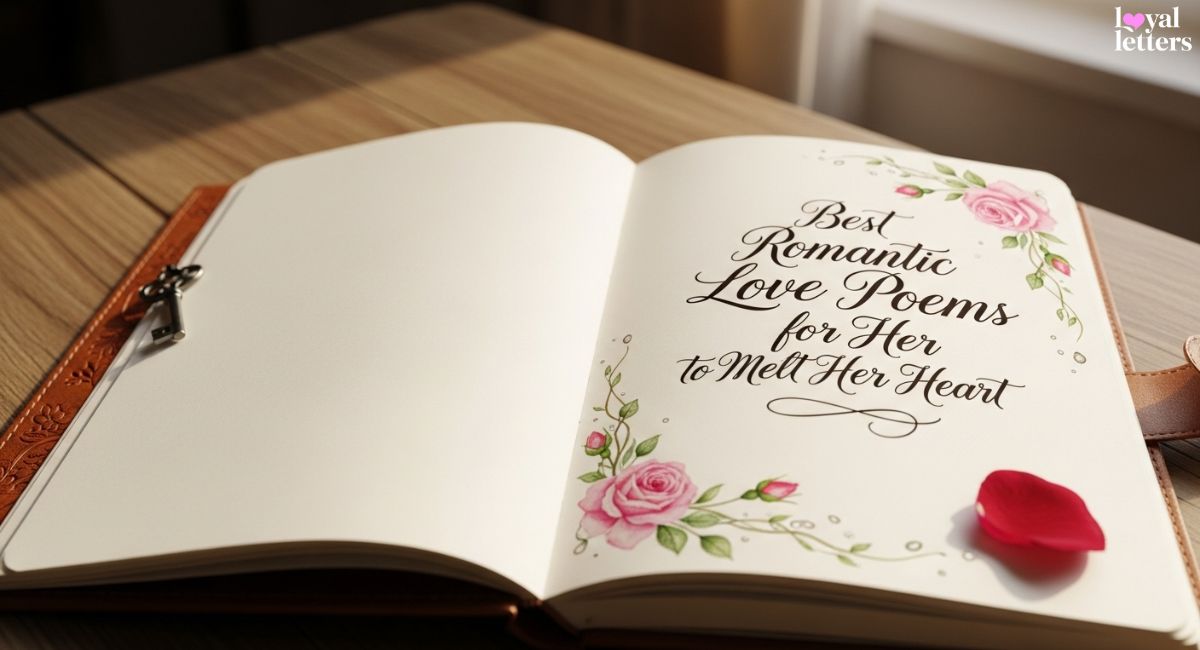 loyal
letters
Best
Romantic
Love Poems
for Her
to Melt Her Heart